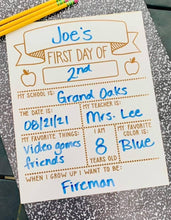 Joe's
FIRST DAY OF
2nd
MY SCHOOL IS:
Grand Oaks
THE DATE IS:
08/21/21
MY TEACHER IS:
Mrs. Lee
MY FAVORITE THINGS:
Video games
friends
I AM
8
YEARS OLD
MY FAVORITE
COLOR IS:
Blue
WHEN I GROW UP I WANT TO BE:
Fireman